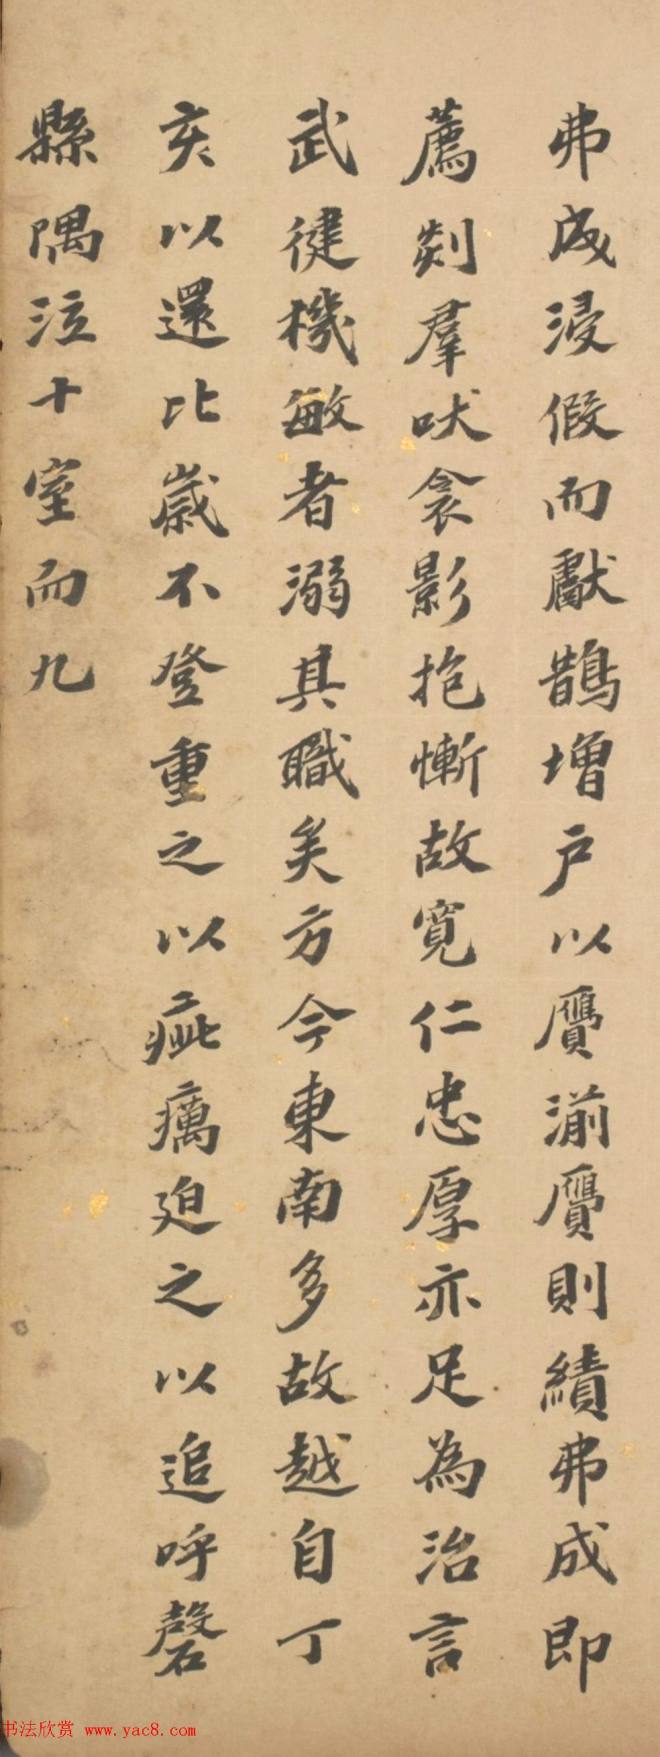 弗成浸假而獻鵲增户以贋湔贋則績弗成即
薦剡羣吠衾影抱慚故寬仁忠厚亦足為治言
武健機敏者溺其職矣方今東南多故越自丁
亥以還比歲不登重之以疵癘迫之以追呼磬
縣隅泣十室而九
书法欣赏 www.yac8.com